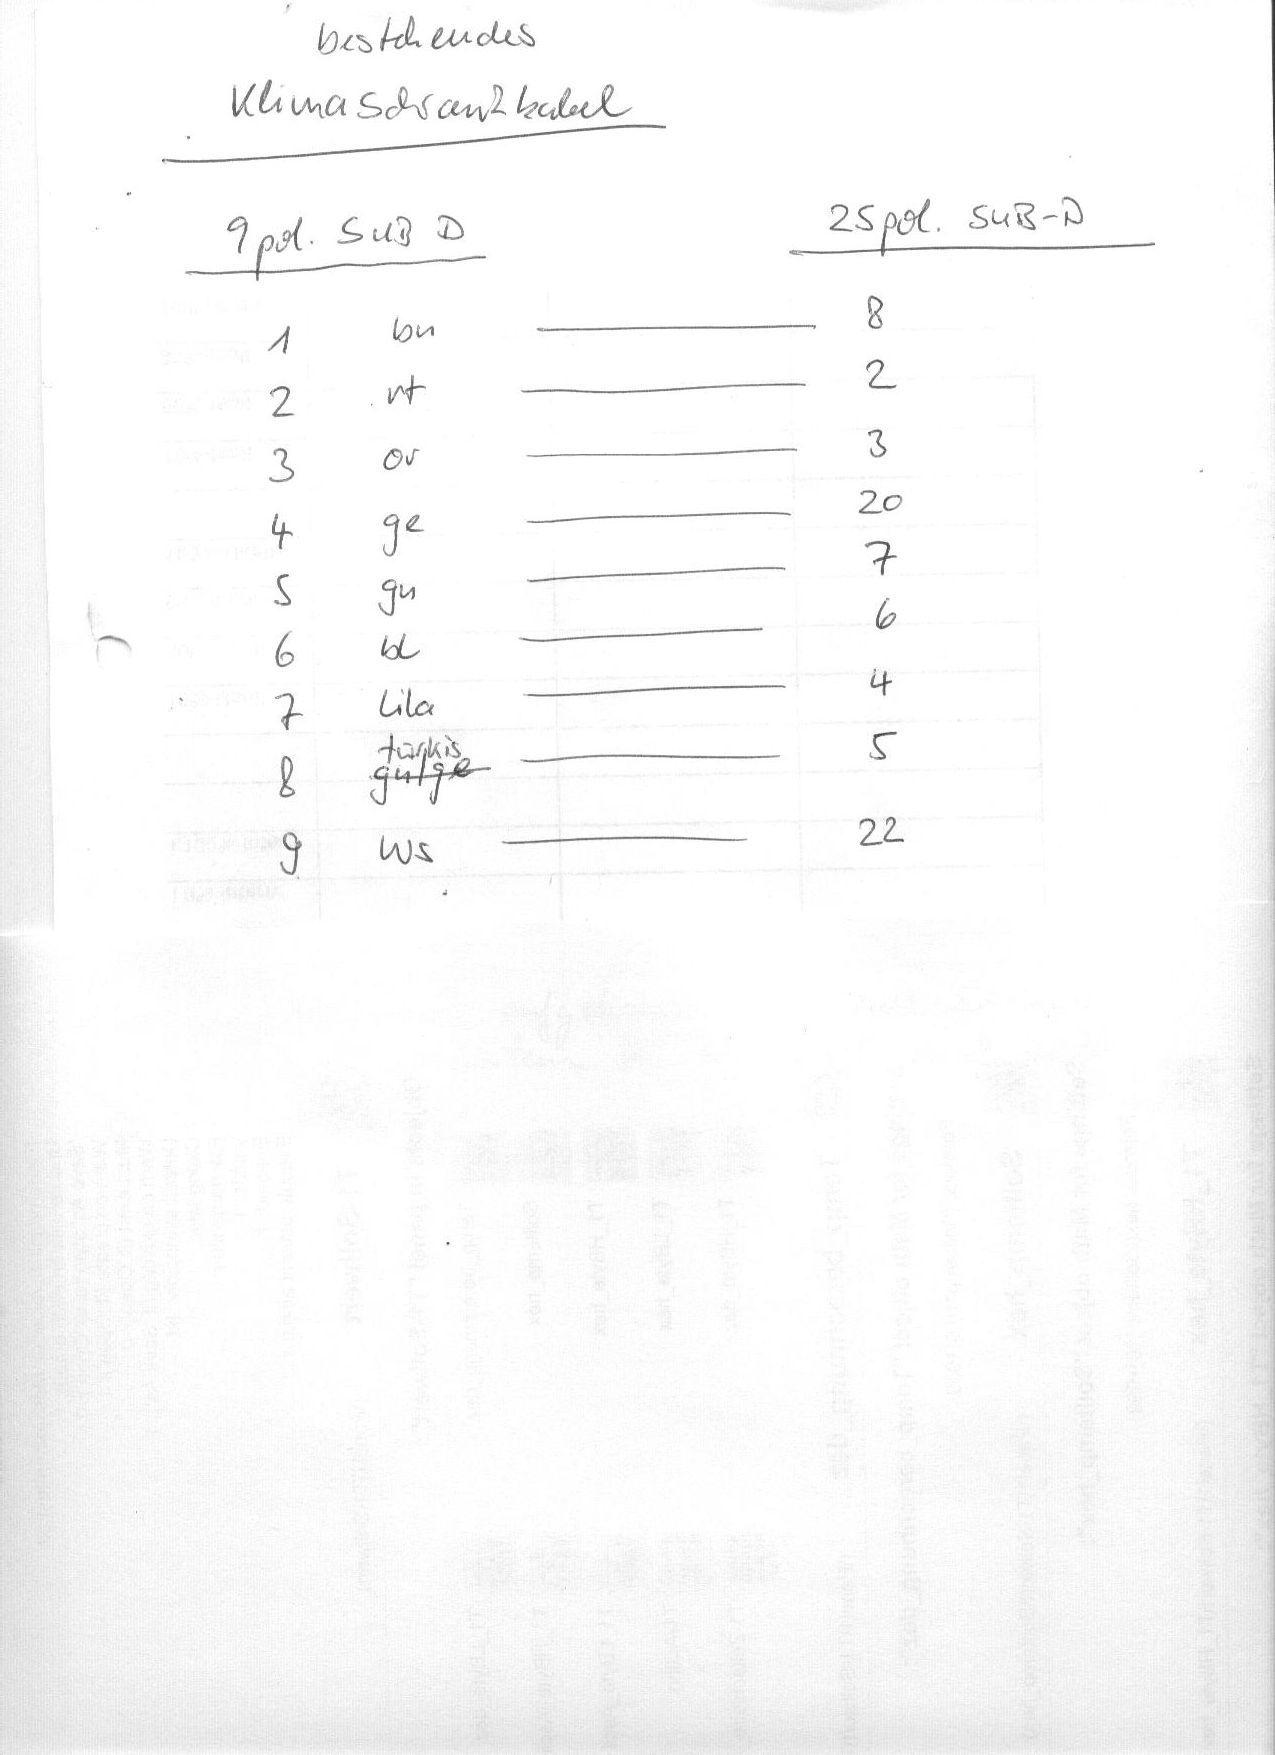 bestehendes
Klimaschrankkabel
9pol. SUB D 25pol. SUB-D
1 bn 8
2 rt 2
3 or 3
4 ge 20
5 gn 7
6 bl 6
7 Lila 4
türkis
8 gn/ge 5
9 Ws 22